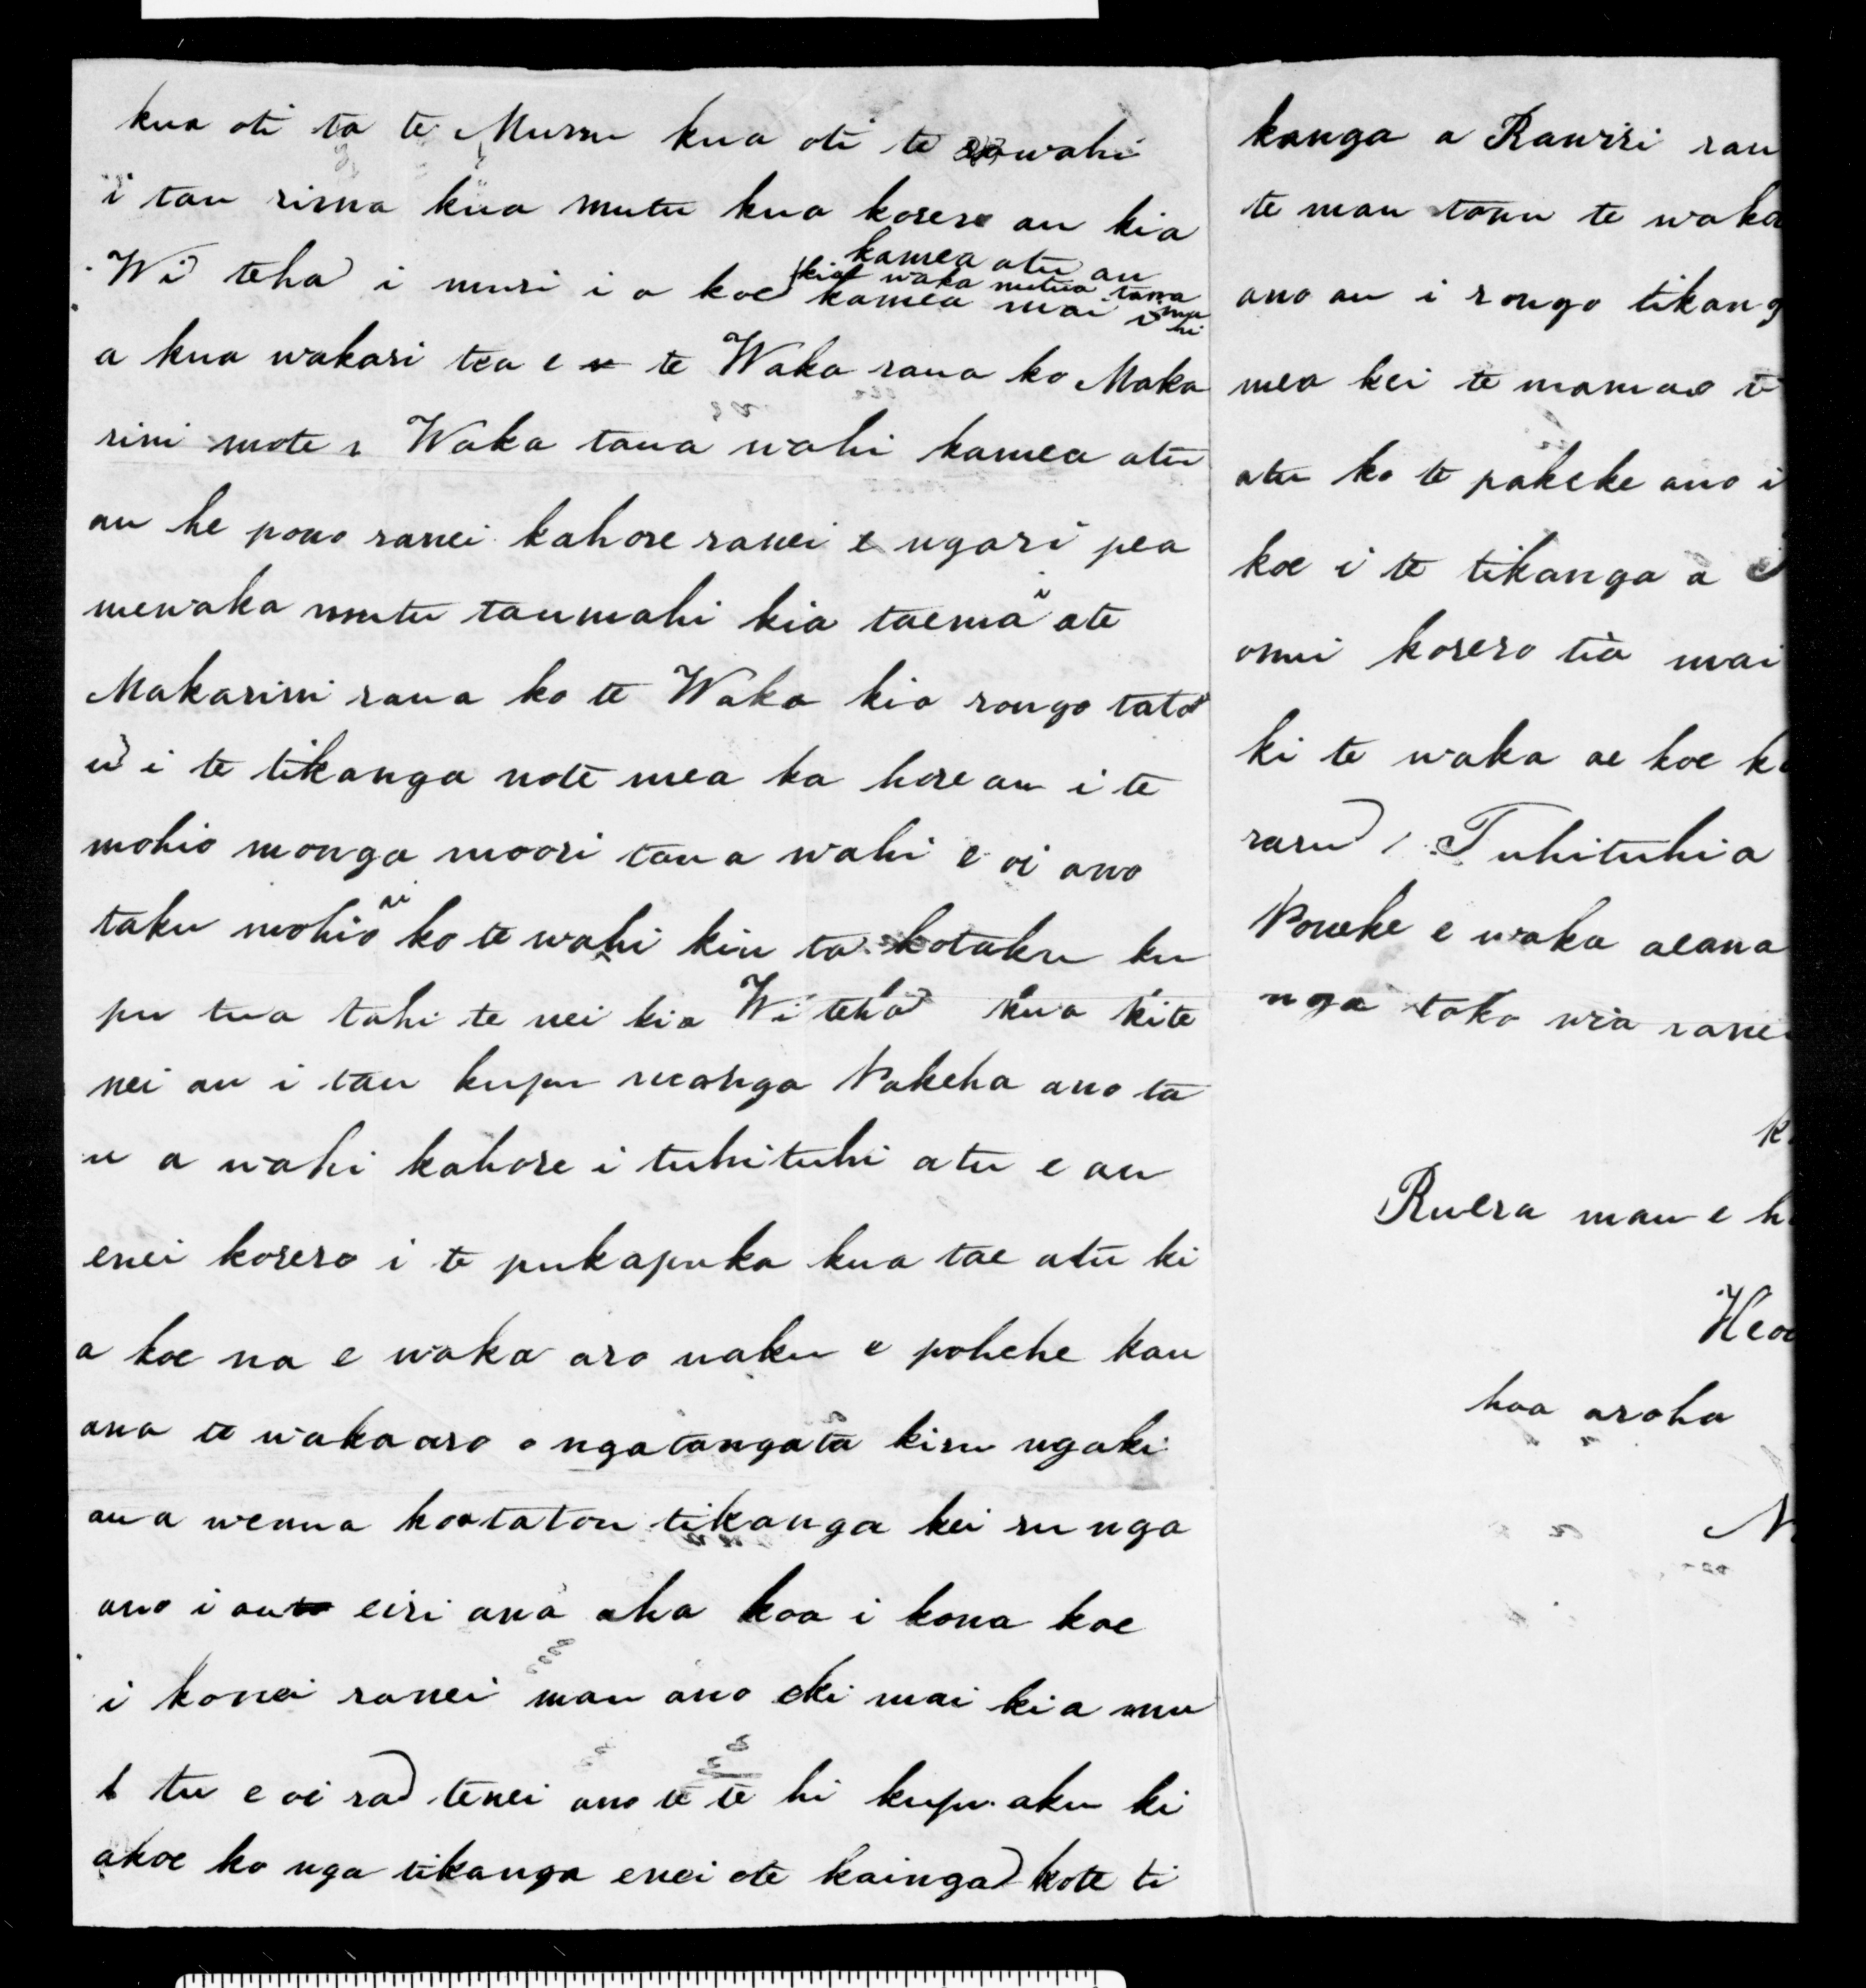 kua oti ta te Muruu kua oti te wahi
i tau rima kua mutu kua korero au kia
Wi teha i muri i a koe kamea mai
kamea atu au
kia waka mutua taua
mahi
a kua wakari tea e te Waka raua ko Maka
rini mote Waka taua wahi kamea atu
au he pono ranei kahore ranei e ngari pea
mewaka mutu taumahi kia taema i ate
Makarini raua ko te Waka kia rongo tato
u i te tikanga note mea ka hore au i te
mohio monga moori tau a wahi e oi ano
taku mohio ai ko te wahi kiu ta kotaku ku
pu tua tahi te nei kia Wi teha kua kite
nei au i tau kupu monga Pakeha ano ta
u a wahi kahore i tuhituhi atu e au
enei korero i te pukapuka kua tae atu ki
a koe na e waka aro naku e pohehe kau
ana te wakaaro o ngatangata kiru ngaki
ana wenua ko tatou tikanga kei ru nga
ano i au eiri ana aha koa i kona koe
i konei ranei mau ano eki mai kia mu
tu e oi ra tenei ano te te hi kupu aku ki
akoe ko nga tikanga enei ote kainga kote ti
kanga a Rawiri rau
te mau tonu te waka
ano au i rongo tikang
mea kei te mamao
atu ko te pakeke ano i
koe i te tikanga a
omui korero tia mai
ki te waka ae koe
raru Tuhituhia
Poneke e waka aeana
nga toko wia ranei
Ruera mau e h
hoa aroha